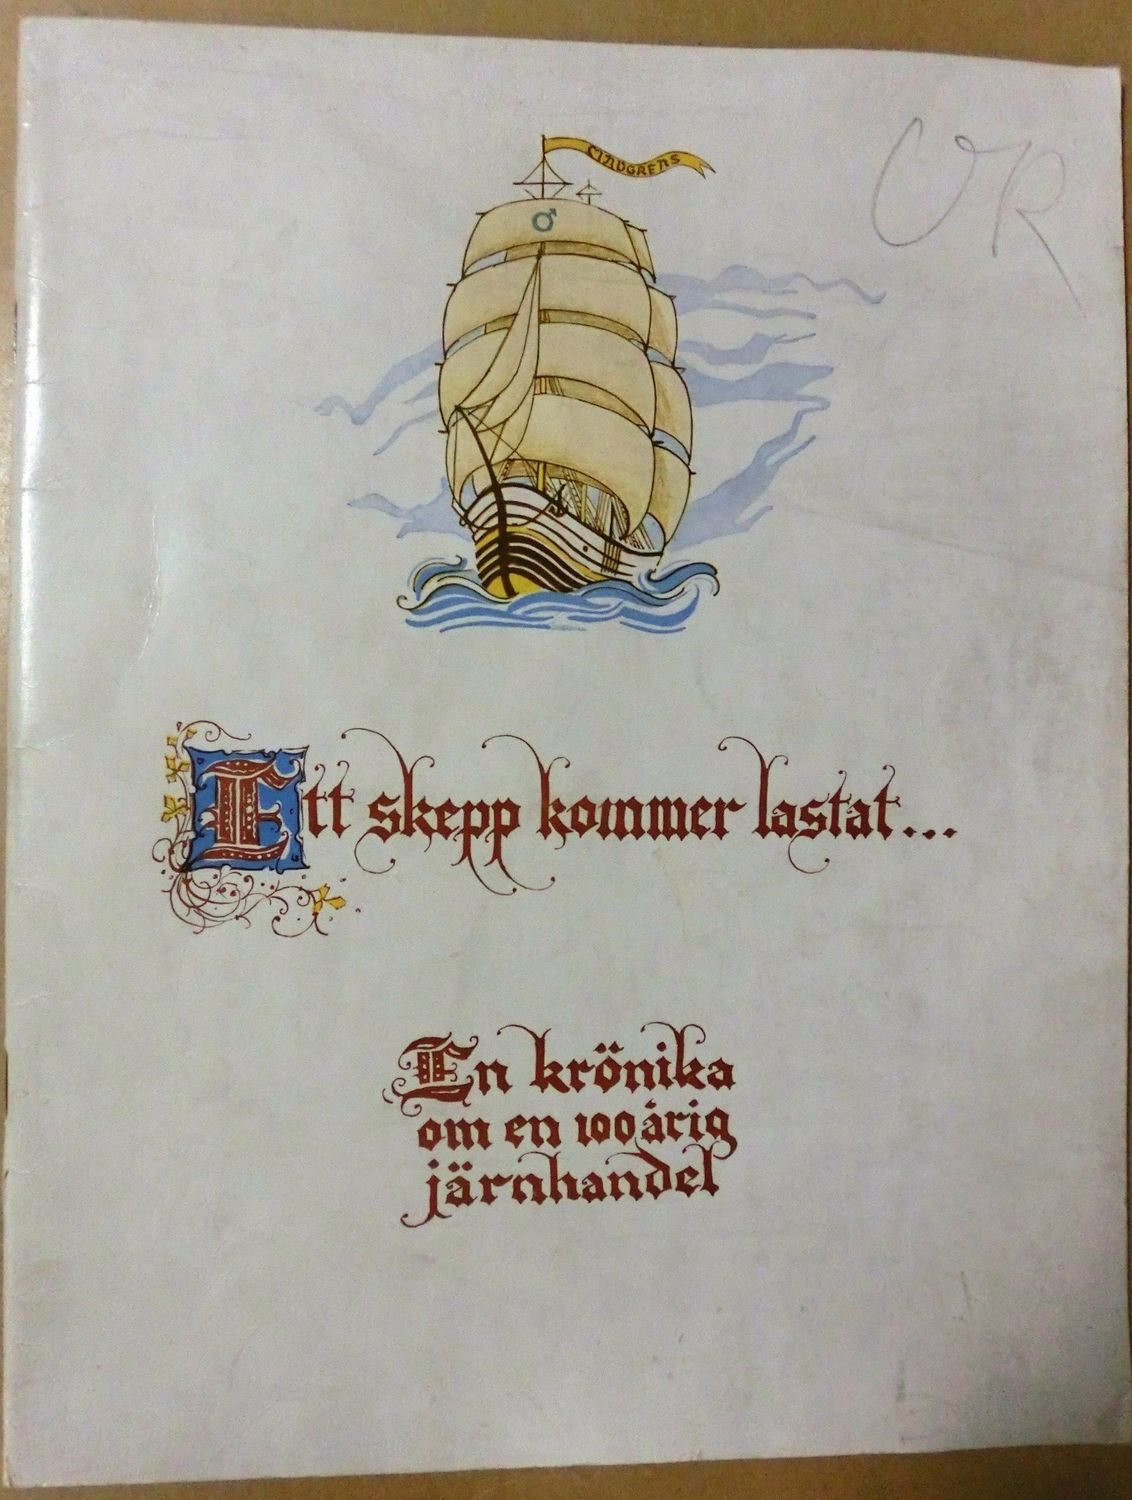 LINDGRENS
♂
VR
Ett skepp kommer lastat...
En krönika
om en 100 årig
järnhandel